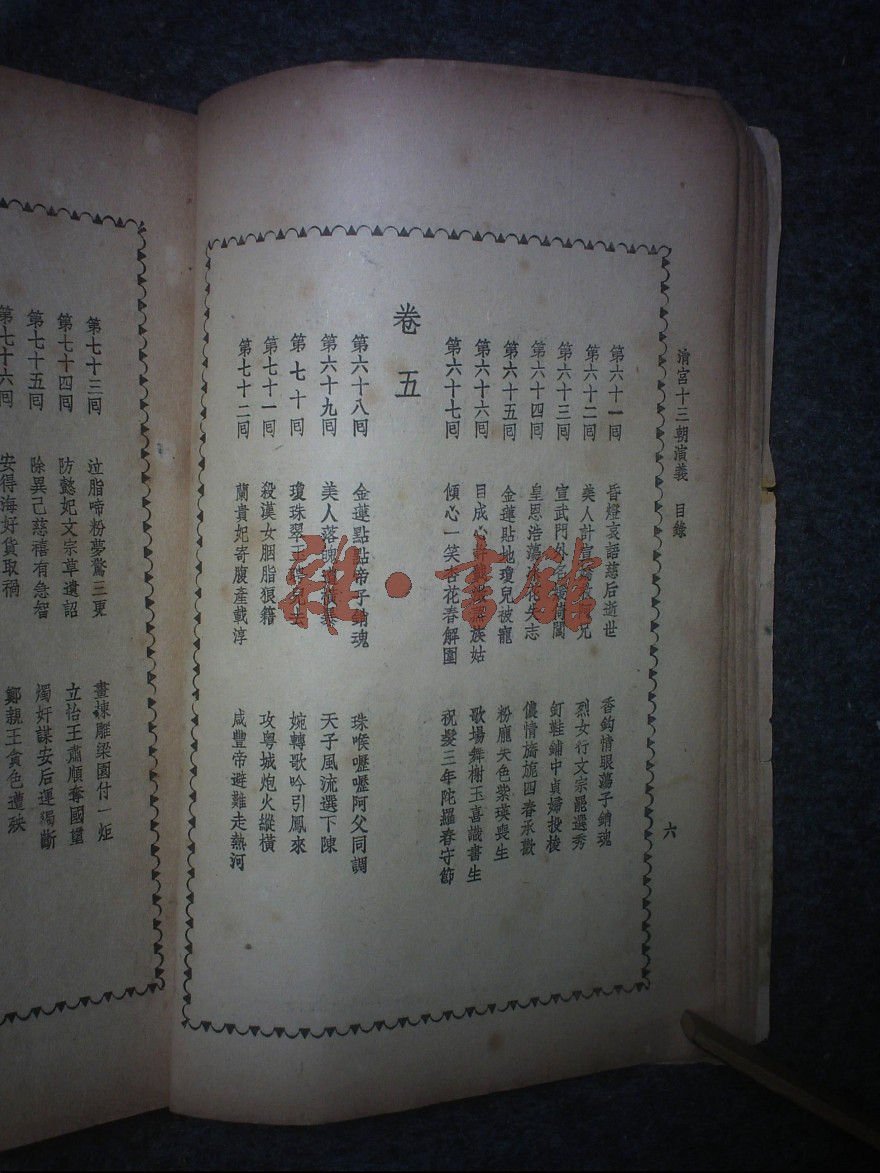 清宮十三朝演義　目錄
六
第六十一回　昏燈哀語慈后逝世　香鉤情眼蕩子銷魂
第六十二回　美人計　兄　烈女行文宗罷選秀
第六十三回　宣武門外　閶　釘鞋鋪中貞婦投梭
第六十四回　皇恩浩蕩　失志　儂情旖旎四春承歡
第六十五回　金蓮貼地瓊兒被寵　粉龐失色紫瑛喪生
第六十六回　目成心　族姑　歌場舞榭玉喜識書生
第六十七回　傾心一笑杏花春解圍　祝髮三年陀羅春守節
卷五
第六十八回　金蓮點點帝子銷魂　珠喉嚦嚦阿父同調
第六十九回　美人落魄遭橫暴　天子風流選下陳
第七十回　瓊珠翠玉　兒去　婉轉歌吟引鳳來
第七十一回　殺漢女胭脂狼籍　攻粵城炮火縱橫
第七十二回　蘭貴妃寄腹產載淳　咸豐帝避難走熱河
第七十三回　泣脂啼粉夢驚三更　畫棟雕梁園付一炬
第七十四回　防懿妃文宗草遺詔　立怡王肅順奪國璽
第七十五回　除異己慈禧有急智　燭奸謀安后運獨斷
第七十六回　安得海好貨取禍　鄭親王貪色遭殃
雜·書館